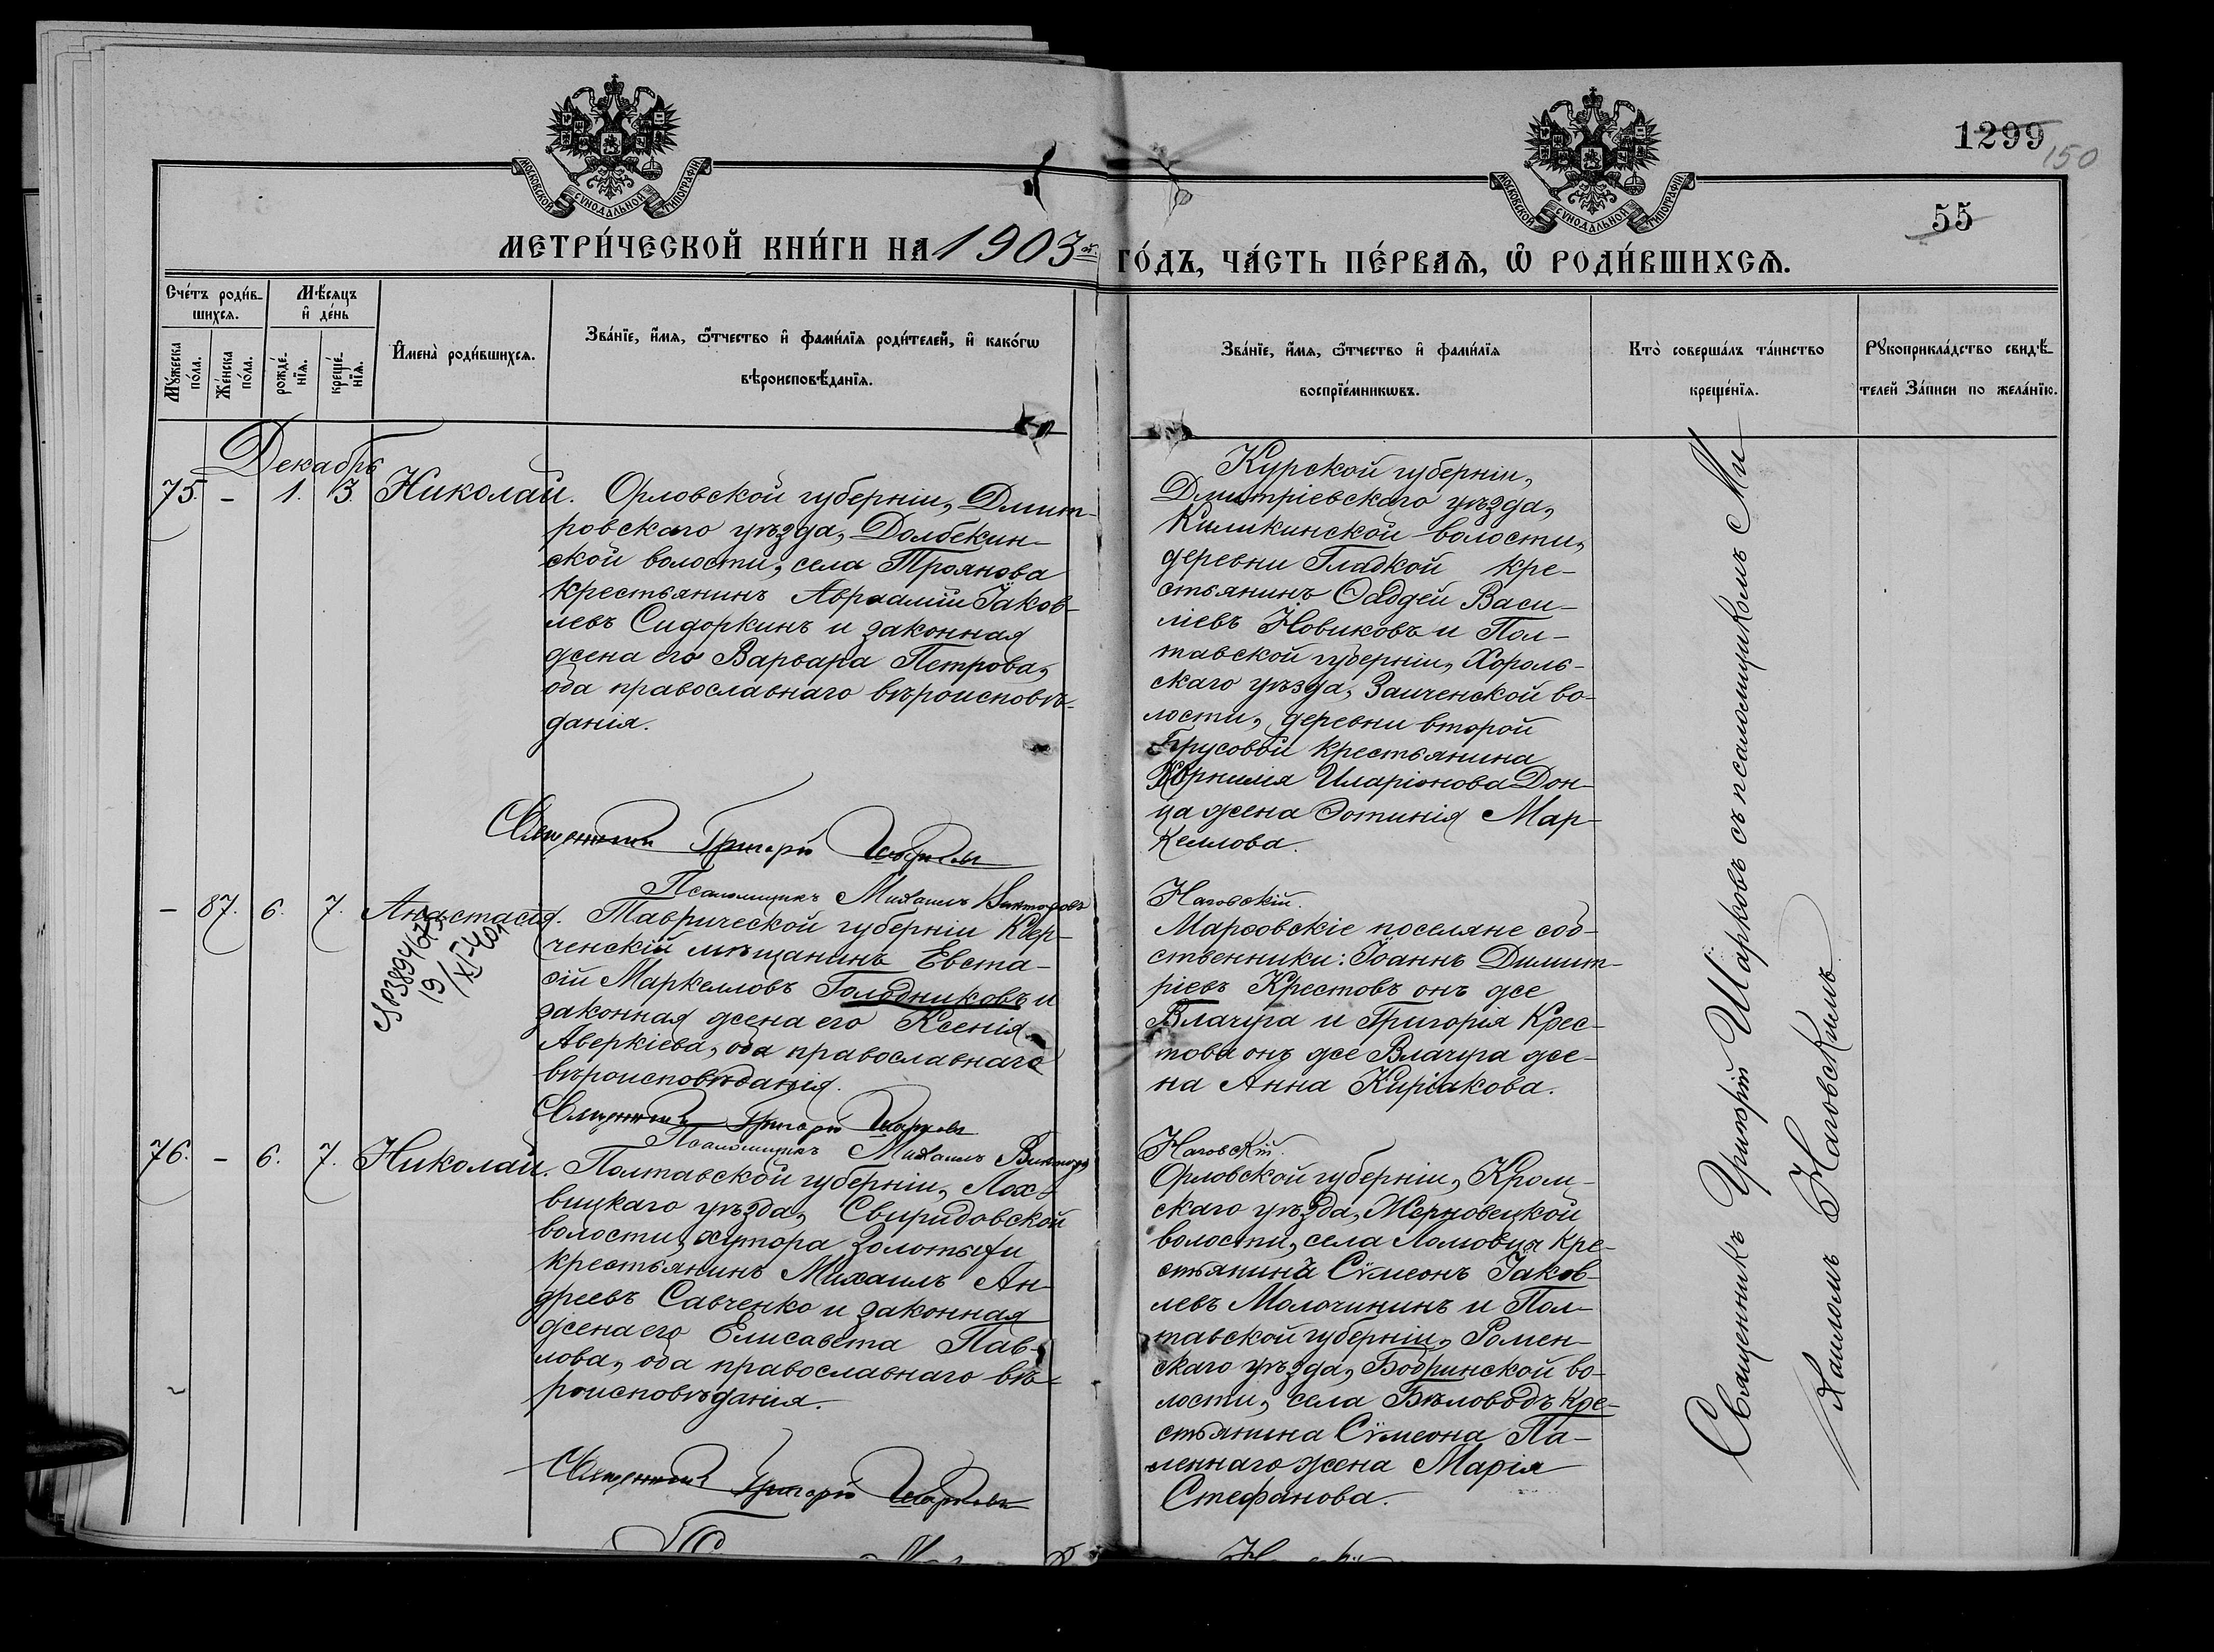 МОСКОВСКОЙ СУНОДАЛЬНОЙ ТИПОГРАФІИ
МОСКОВСКОЙ СУНОДАЛЬНОЙ ТИПОГРАФІИ
1299
150
55
МЕТРИ́ЧЕСКОЙ КНИ́ГИ НА 1903 ГО́ДЪ, ЧА́СТЬ ПЕ́РВАЯ, Ѡ РОДИ́ВШИХСЯ.
Сче́тъ роди́в-
шихся.
Мѣ́сяцъ
и де́нь
Му́жеска
по́ла.
Же́нска
по́ла.
рожде́-
нїя.
креще́-
нїя.
Имена̀ роди́вшихся.
Зва́нїе, и́мя, ѻ́тчество и фами́лїя роди́телей, и како́гѡ
вѣроисповѣ́данїя.
Зва́нїе, и́мя, ѻ́тчество и фами́лїя
воспрїе́мникѡвъ.
Кто̀ соверша́лъ та́инство
креще́нїя.
Рукоприкла́дство свидѣ́-
телей за́писи по жела́нїю.
Декабрь
75. - 1. 3. Николай.
Орловской губерніи, Дмит-
ровскаго уѣзда, Долбекин-
ской волости, села Троянова
крестьянинъ Авраамій Іаков-
левъ Сидоркинъ и законная
жена его Варвара Петрова,
оба православнаго вѣроисповѣ-
данія.
Священникъ Григорій Шарковъ
Псаломщикъ Михаилъ Викторовъ
Курской губерніи,
Дмитріевскаго уѣзда,
Киликинской волости,
деревни Гладкой кре-
стьянинъ Ѳаддей Васи-
ліевъ Новиковъ и Пол-
тавской губерніи, Хороль-
скаго уѣзда, Заиченской во-
лости, деревни второй
Трусовой крестьянина
Корнилія Иларіонова Дон-
ца жена Фотинія Мар-
келлова.
Наговскій.
- 87. 6. 7. Анастасія.
19/XI-40
Таврической губерніи Кер-
ченскій мѣщанинъ Евста-
ѳій Маркелловъ Голодниковъ и
законная жена его Ксенія
Аверкіева, оба православнаго
вѣроисповѣданія.
Священникъ Григорій Шарковъ
Псаломщикъ Михаилъ Викторовъ
Марѳовскіе поселяне соб-
ственники: Іоаннъ Димит-
ріевъ Крестовъ онъ же
Влачуга и Григорія Крес-
това онъ же Влачуга же-
на Анна Киріакова.
Наговскій.
76. - 6. 7. Николай.
Полтавской губерніи, Лох-
вицкаго уѣзда, Свиридовской
волости, хутора Золотухи
крестьянинъ Михаилъ Ан-
дреевъ Савченко и законная
жена его Елисавета Пав-
лова, оба православнаго вѣ-
роисповѣданія.
Священникъ Григорій Шарковъ
Орловской губерніи, Кром-
скаго уѣзда, Жерновецкой
волости, села Ломовца кре-
стьянинъ Сѵмеонъ Іаков-
левъ Молочининъ и Пол-
тавской губерніи, Ромен-
скаго уѣзда, Бобринской во-
лости, села Бѣловодъ кре-
стьянина Сѵмеона Па-
леннаго жена Марія
Стефанова.
Священникъ Григорій Шарковъ съ псаломщикомъ Ми-
хаиломъ Наговскимъ.